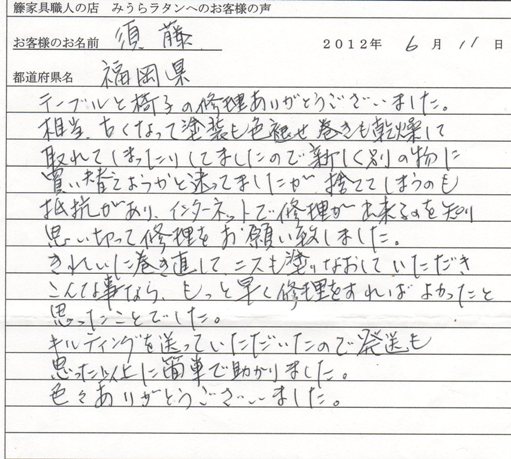 籐家具職人の店 みうらラタンへのお客様の声
お客様のお名前 須藤 2012年 6月 11日
都道府県名 福岡県
テーブルと椅子の修理ありがとうございました。
相当、古くなって塗装も色褪せ巻きも乾燥して
取れてしまったりしてましたので新しく別の物に
買い替えようかと迷ってましたが捨ててしまうのも
抵抗があり、インターネットで修理が出来るのを知り
思い切って修理をお願い致しました。
きれいに巻き直して、ニスも塗りなおしていただき
こんな事なら、もっと早く修理をすればよかったと
思ったことでした。
キルティングを送っていただいたので発送も
思った以上に簡単で助かりました。
色々ありがとうございました。